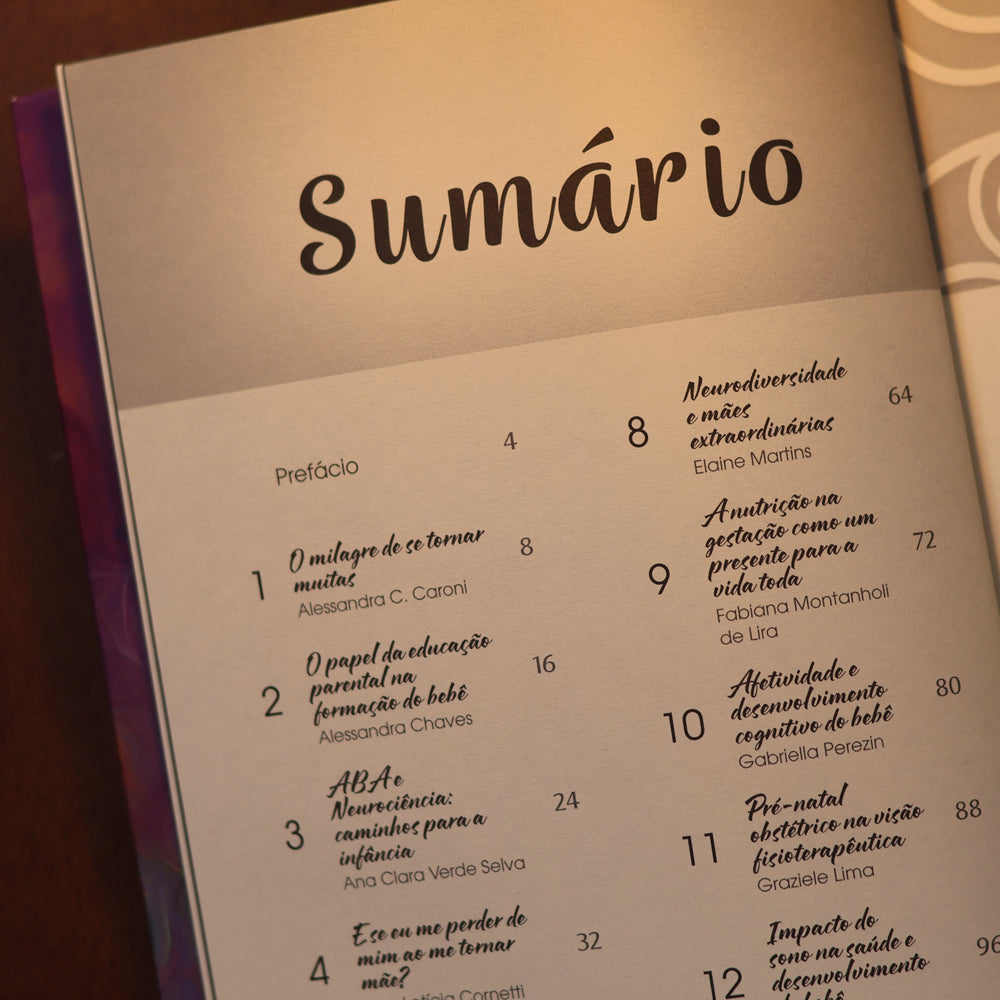 Sumário
Prefácio 4
1 O milagre de se tornar 8
muitas
Alessandra C. Caroni
2 O papel da educação 16
parental na
formação do bebê
Alessandra Chaves
3 ABA e 24
Neurociência:
caminhos para a
infância
Ana Clara Verde Selva
4 E se eu me perder de 32
mim ao me tornar
mãe?
Letícia Cornetti
8 Neurodiversidade 64
e mães
extraordinárias
Elaine Martins
9 A nutrição na 72
gestação como um
presente para a
vida toda
Fabiana Montanholi
de Lira
10 Afetividade e 80
desenvolvimento
cognitivo do bebê
Gabriella Perezin
11 Pré-natal 88
obstétrico na visão
fisioterapêutica
Graziele Lima
12 Impacto do 96
sono na saúde e
desenvolvimento
bebê